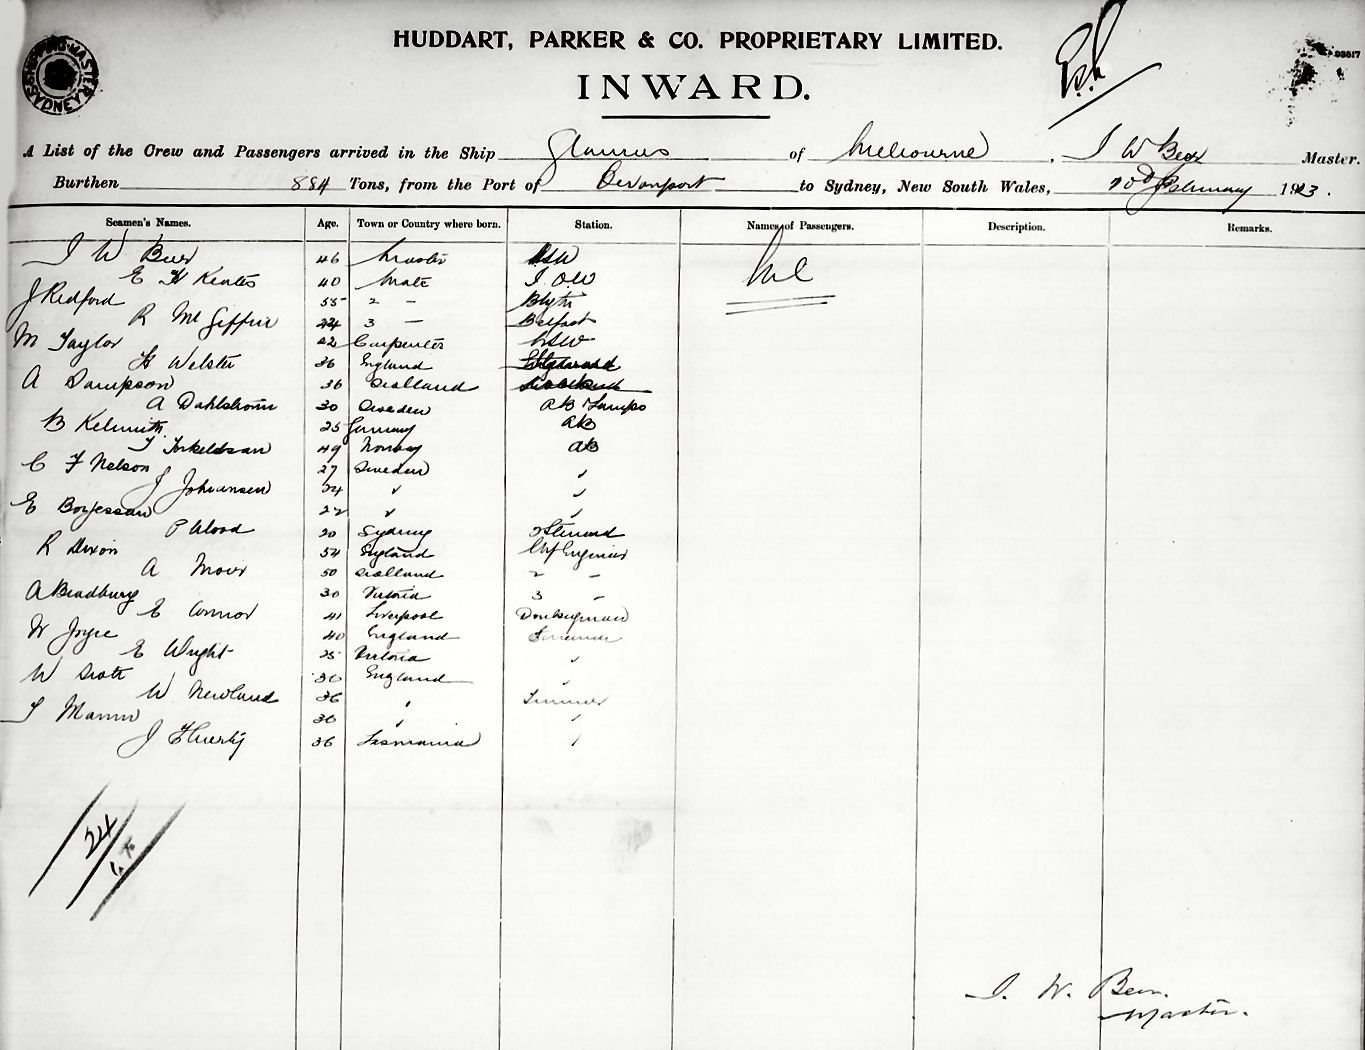 HUDDART, PARKER & CO. PROPRIETARY LIMITED.
INWARD.
SHIPPING MASTER SYDNEY
93517
A List of the Crew and Passengers arrived in the Ship Glaucus of Melbourne, J W Beer Master.
Burthen 884 Tons, from the Port of Devonport to Sydney, New South Wales, February 1913.
Seamen's Names. Age. Town or Country where born. Station. Names of Passengers. Description. Remarks.
J W Beer 46 Master NSW Nil
E H Keates 40 Mate I OW
J Redford 55 2 — Blyth
R McGiffin 24 3 — Belfast
M Taylor 22 Carpenter NSW
H Welster 36 England
A Sampson 36 Scotland
A Dahlstrom 30 Sweden AB Lamps
B Kelmith 25 Germany AB
T Torkeldsan 49 Norway AB
C F Nelson 27 Sweden "
J Johansen 24 " "
E Borjessan 22 " "
P Wood 20 Sydney Steward
R Dixon 54 England Chf Engineer
A Moir 50 Scotland 2 —
A Bradbury 30 Victoria 3 —
E Connor 41 Liverpool Donkeyman
W Joyce 40 England Fireman
E Wright 25 Victoria "
W Scott 30 England "
W Newland 36 " Trimmer
T Mann 36 " "
J Fluerty 36 Tasmania "
24
J. W. Beer.
Master.